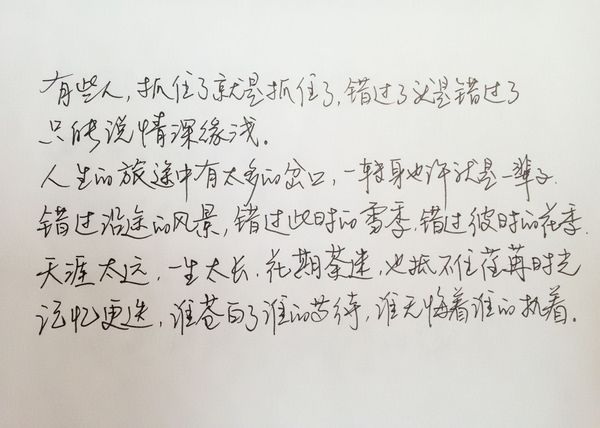 有些人，抓住了就是抓住了，错过了就是错过了
只能说情深缘浅。
人生的旅途中有太多的岔口，一转身也许就是一辈子.
错过沿途的风景，错过此时的雪季，错过彼时的花季.
天涯太远，一生太长，花期荼迷，也抵不住荏苒时光
记忆更迭，谁苍白了谁的等待，谁无悔着谁的执着。